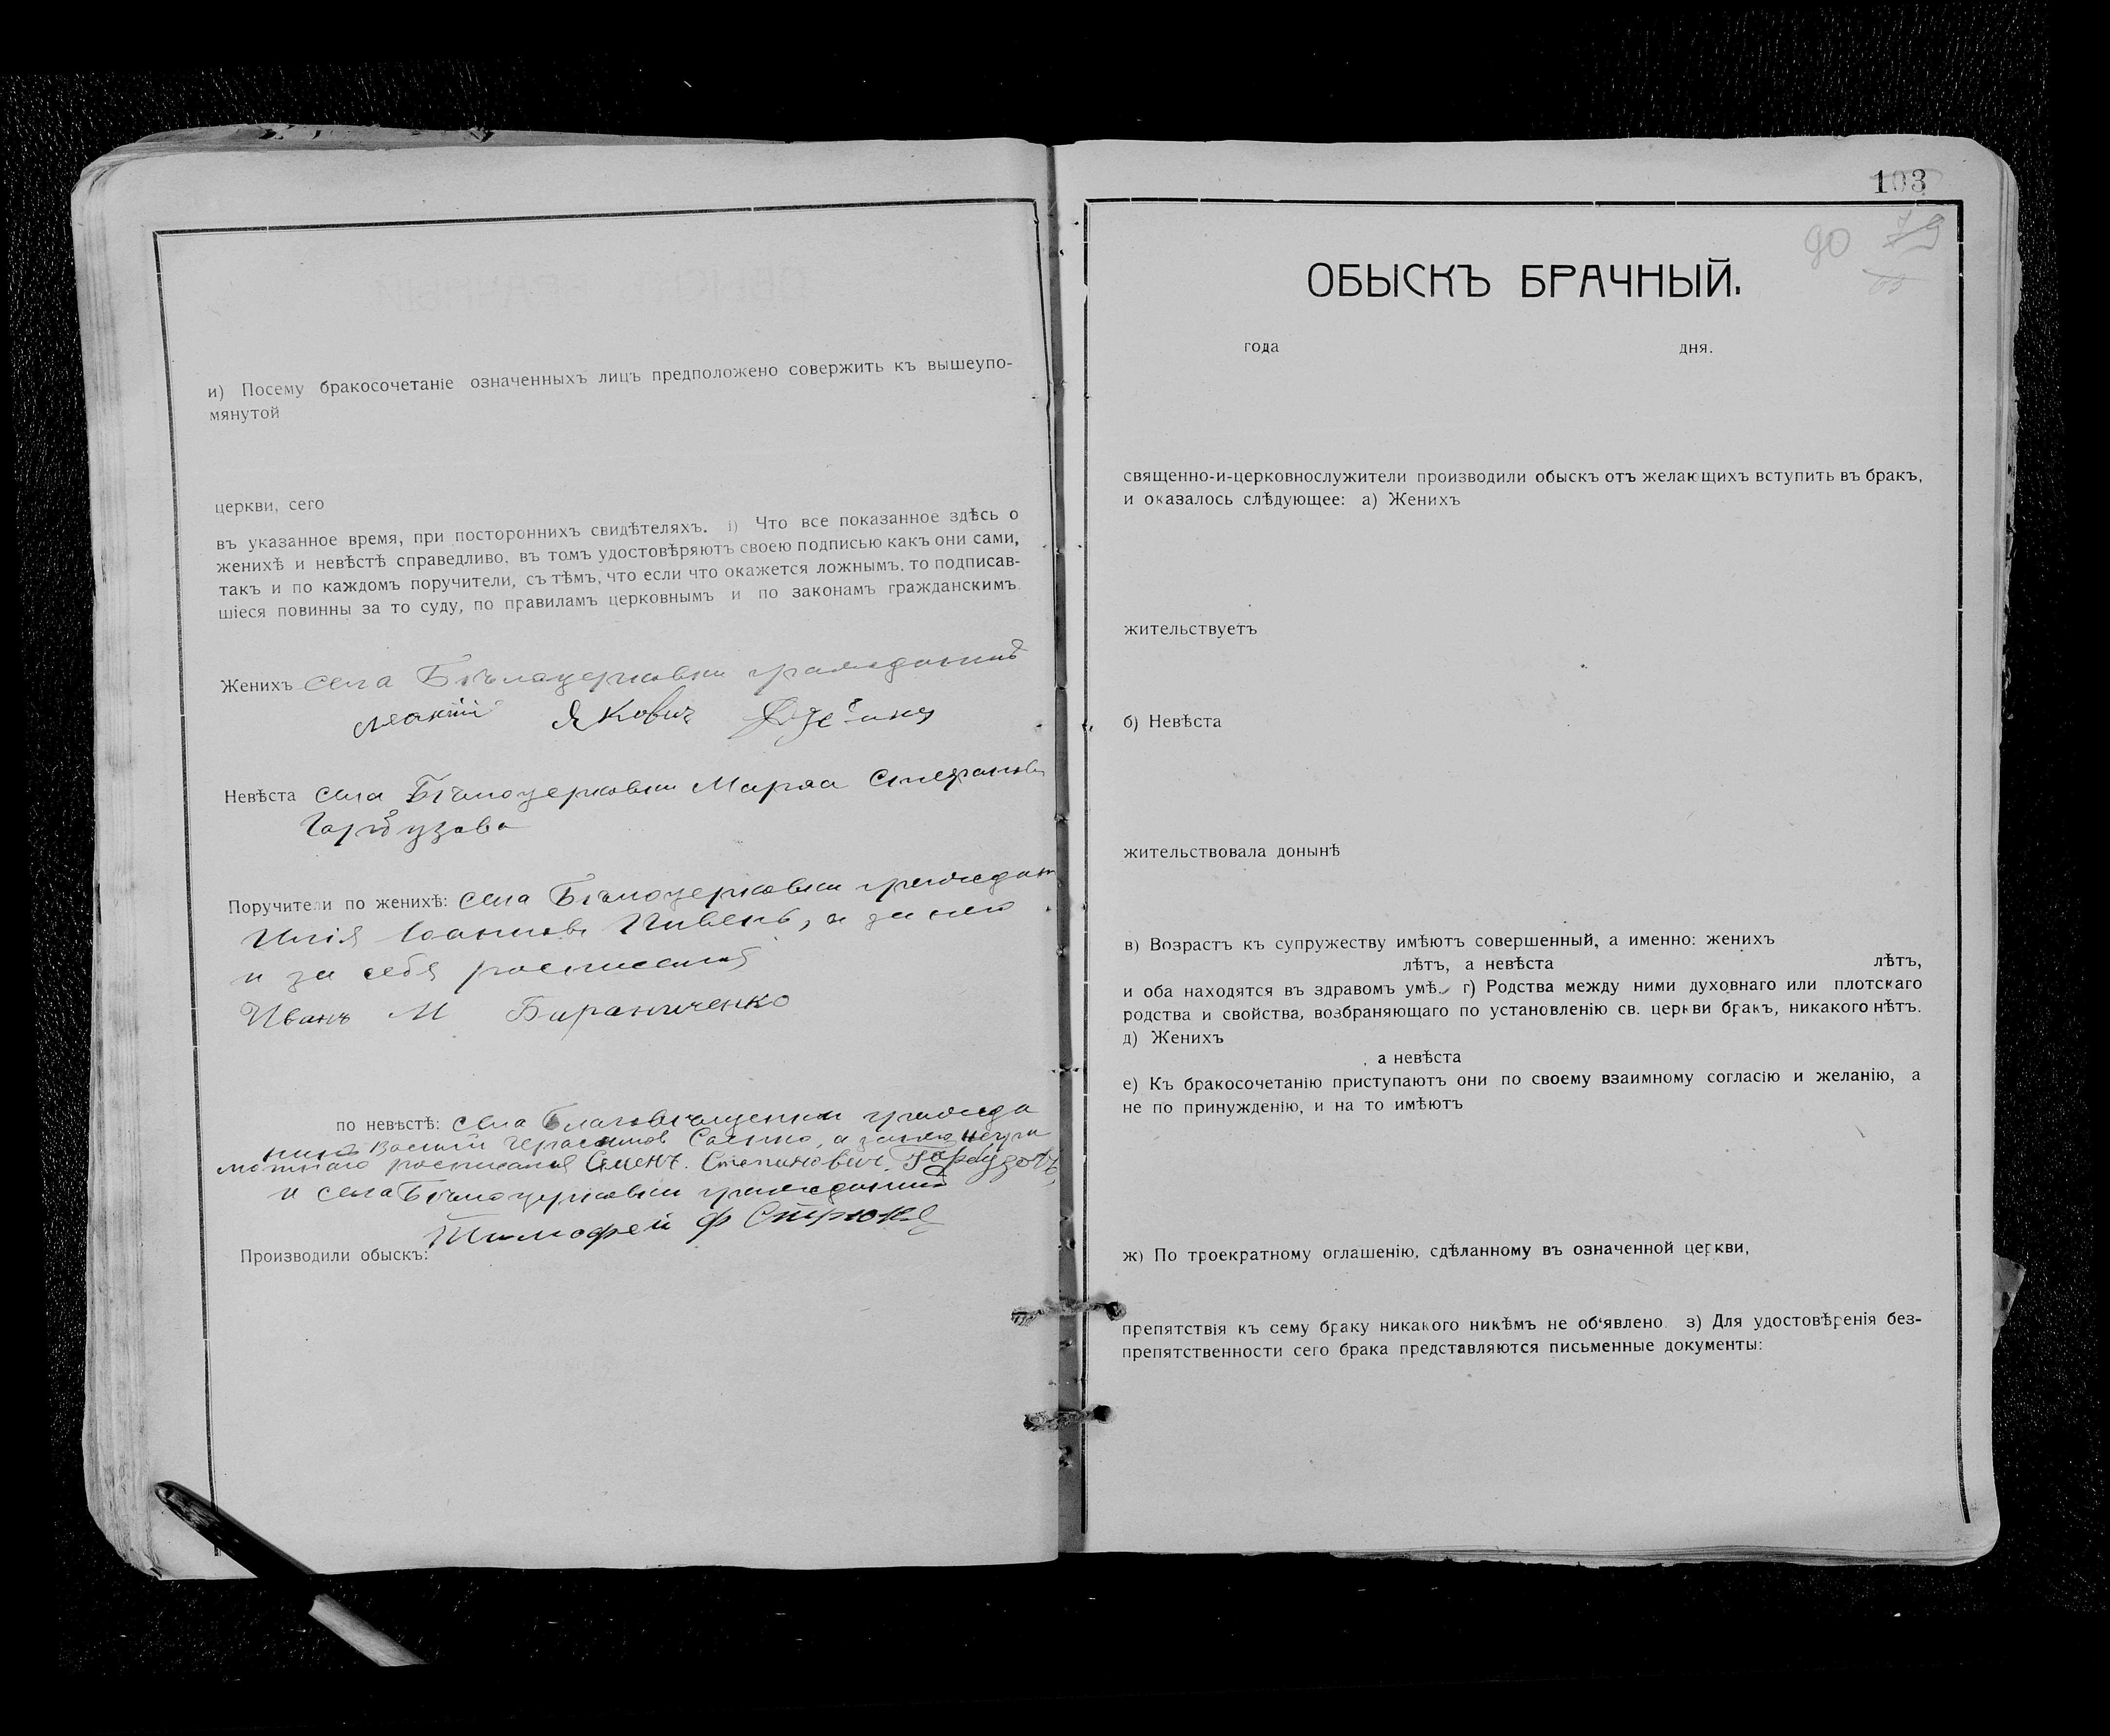 и) Посему бракосочетаніе означенныхъ лицъ предположено совержить къ вышеупо-
мянутой
церкви, сего
въ указанное время, при постороннихъ свидѣтеляхъ. і) Что все показанное здѣсь о
женихѣ и невѣстѣ справедливо, въ томъ удостовѣряютъ своею подписью какъ они сами,
такъ и по каждомъ поручители, съ тѣмъ, что если что окажется ложнымъ, то подписав-
шіеся повинны за то суду, по правиламъ церковнымъ и по законамъ гражданскимъ.
Женихъ села Бѣлоцерковки гражданинъ
Якович
Невѣста села Бѣлоцерковки Марѳа Стефанова
Гарбузова
Поручители по женихѣ: села Бѣлоцерковки граждан
Илія Іоаннов Пивень, а за него
и за себя росписался
Иванъ М Бараниченко
по невѣстѣ: села Благовѣщенки гражда
нинъ Василій Герасимов а за него негра
мотнаго росписался Семенъ Степановичъ Гарбузовъ
и села Бѣлоцерковки гражданинъ
Тимофей Ф Стрюкъ
Производили обыскъ:
103
90 79
ОБЫСКЪ БРАЧНЫЙ.
года дня.
священно-и-церковнослужители производили обыскъ отъ желающихъ вступить въ бракъ,
и оказалось слѣдующее: а) Женихъ
жительствуетъ
б) Невѣста
жительствовала донынѣ
в) Возрастъ къ супружеству имѣютъ совершенный, а именно: женихъ
лѣтъ, а невѣста лѣтъ,
и оба находятся въ здравомъ умѣ. г) Родства между ними духовнаго или плотскаго
родства и свойства, возбраняющаго по установленію св. церкви бракъ, никакого нѣтъ.
д) Женихъ
, а невѣста
е) Къ бракосочетанію приступаютъ они по своему взаимному согласію и желанію, а
не по принужденію, и на то имѣютъ
ж) По троекратному оглашенію, сдѣланному въ означенной церкви,
препятствія къ сему браку никакого никѣмъ не об‘явлено. з) Для удостовѣренія без-
препятственности сего брака представляются письменные документы: